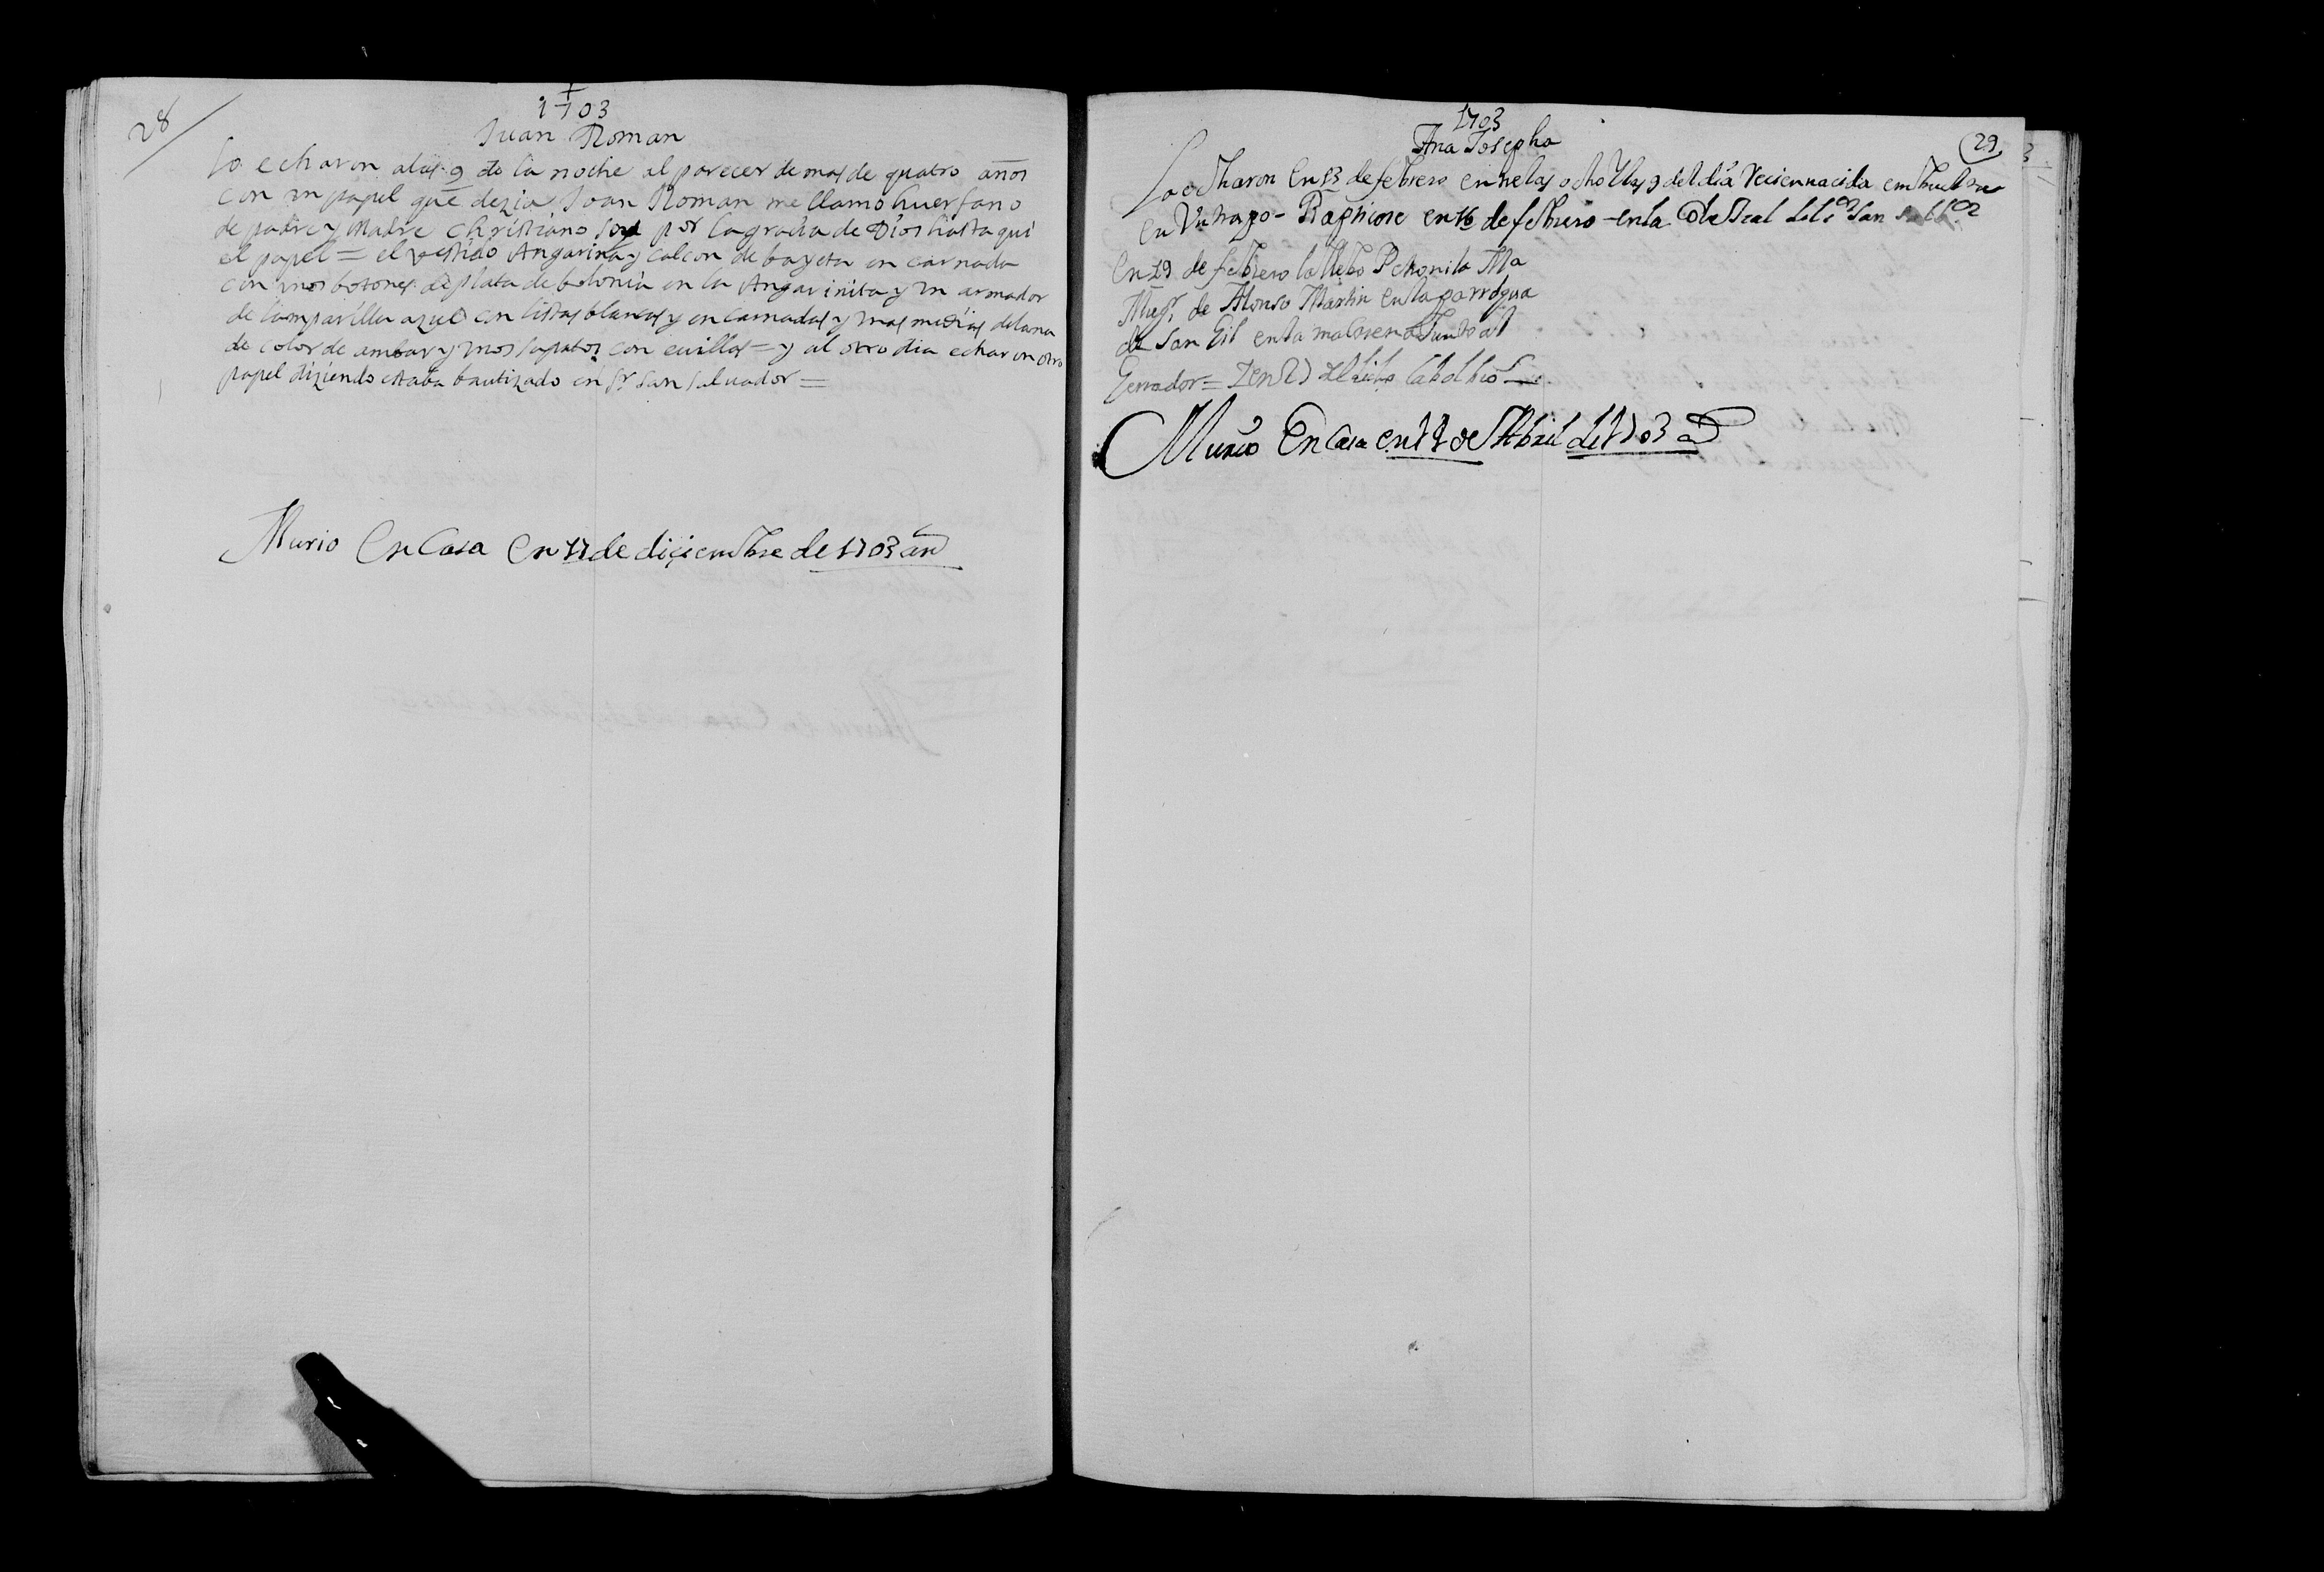 28
1703
Juan Roman
lo echaron alas 9 de la noche al parecer de mas de quatro años
con un papel que dezia Joan Roman me llamo huerfano
de padre y Madre christiano soy por la gracia de Dios hasta qui
el papel = el vestido Angarina y calcon de bayeta en carnada
con unos botones de plata de bolonia en la Angarinita y un armador
de lamparilla azul con listas blancas y en carnadas y unas medias de lana
de color de ambar y unos sapatos con evillas = y al otro dia echaron otro
papel diziendo estaba bautizado en Sr. San saluador =
Murio En Casa en 17 de diziembre de 1703 an
29
1703
Ana Josepha
La echaron En 13 de febrero entre las ocho y las 9 del dia Recien nacida embuelta
en Un trapo - Baptiçose en 16 de febrero - en la del San
En 19 de febrero la llebo Petronila Ma
Mugr. de Alonso Martin en la parrogia
de San Gil en la macarena Junto al
Gerrador = la bolbio
Murio En Casa en 12 de Abril de 1703 a